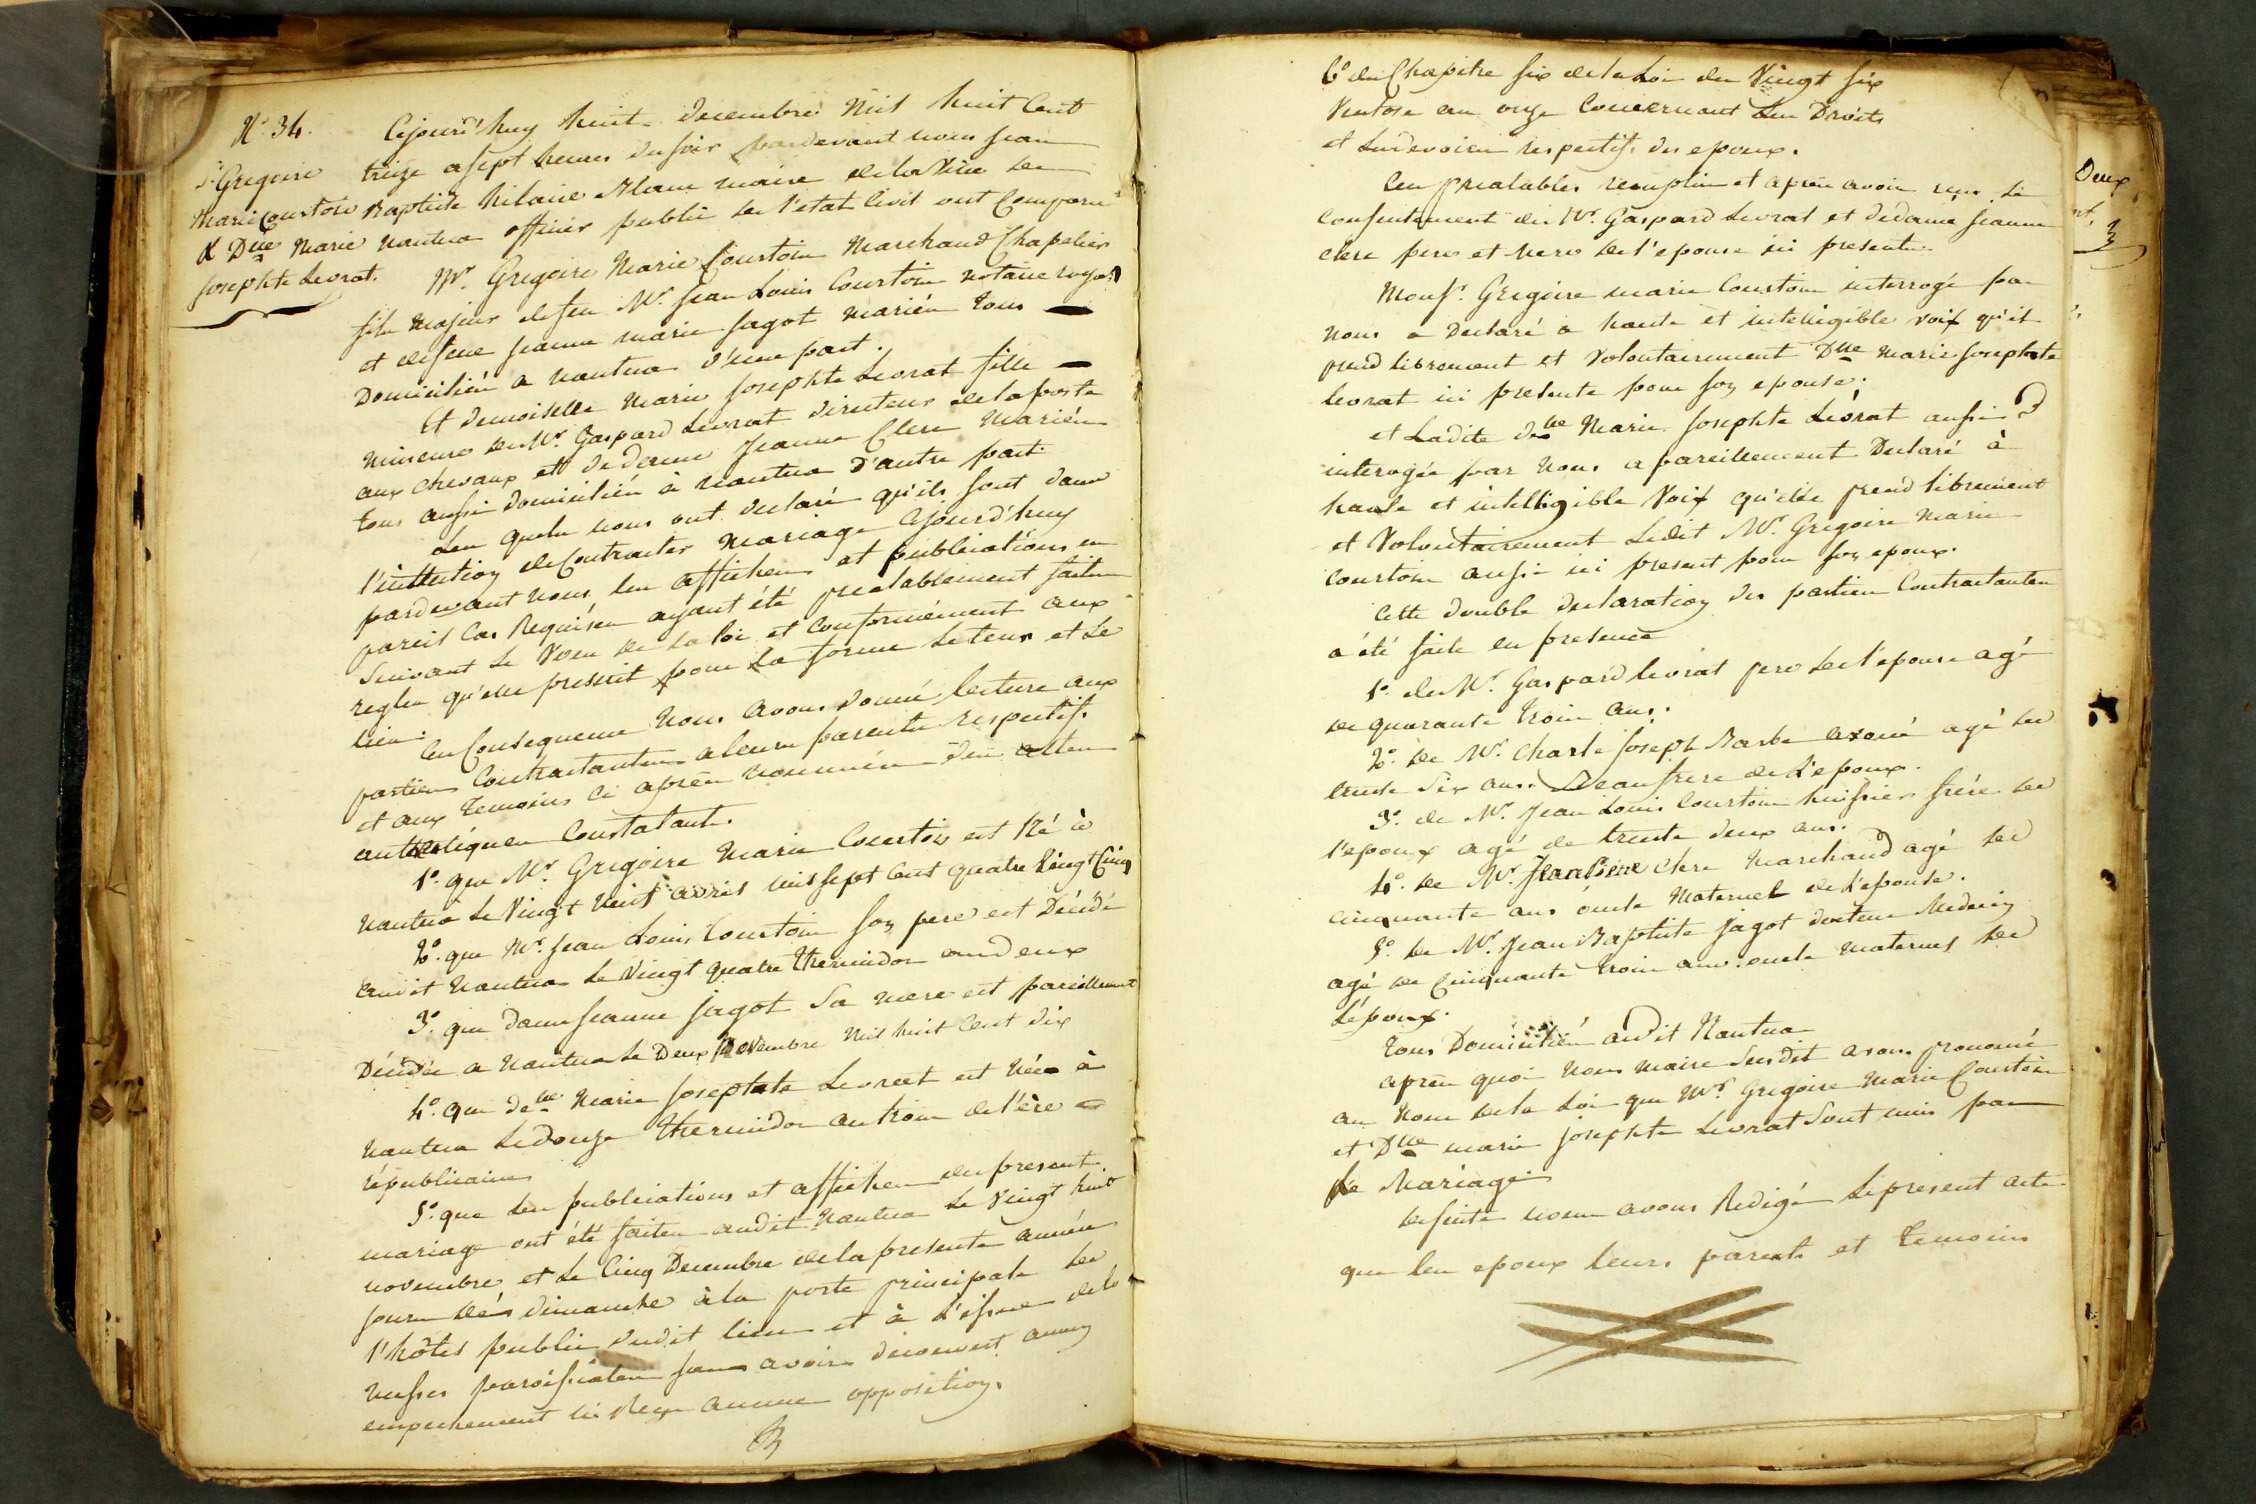 N.° 34.
S.r Gregoire
Marie Courtois
& D.lle Marie
Josephte Levrat.
Cejourd'huy huit decembre Mil huit Cent
treize a sept heures du soir pardevant nous jean
Baptiste hilaire maire de la Ville de
nantua officier public de l'etat Civil ont Comparu
M.r Gregoire Marie Courtois Marchand Chapelier
fils majeur de feu M.r jean Louis Courtois notaire royal
et de feue jeanne marie jagot mariés tous
Domiciliés a nantua d'une part.
Et demoiselle Marie Josephte Levrat fille
mineure de M.r Gaspard Levrat directeur de la poste
aux chevaux et de dame Jeanne Clerc Mariés
tous aussi domiciliés à nantua d'autre part.
Les quels nous ont declaré qu'ils sont dans
l'intention de Contracter mariage Cejourd'huy
pardevant nous les affiches et publications en
pareil Cas Requises ayant été prealablement faites
Suivant le Voeu de la loi et Conformément aux
regles qu'elle prescrit pour La forme le tems et Le
lieu.
En Consequence Nous avons donné lecture aux
parties Contractantes a leurs parents respectifs
et aux temoins ci après nommés des actes
autentiques Constatant.
1.° que M.r Gregoire Marie Courtois est Né à
nantua le Vingt huit avril mil sept Cent quatre Vingt Cinq
2.° que M.r Jean Louis Courtois son pere est Décédé
audit nantua Le Vingt quatre thermidor an deux
3.° que dame jeanne jagot Sa mere est pareillement
Décédée a nantua Le Deux Novembre Mil huit Cent dix
4.° que de.lle Marie josephte Levrat est Née à
nantua Le douze thermidor an trois de l'ére
républicaine
5.° que les publications et affiches du present
mariage ont été faites audit nantua Le Vingt huit
novembre et Le Cinq Decembre de la presente année
jours de dimanche à la porte principale de
l'hôtel public dudit lieu et à L'issue de la
messe paroissiale sans avoir decouvert aucun
empechement ni Reçu aucune opposition.
6.° du Chapitre six de la Loi du Vingt six
Ventose an onze Concernant Les Droits
et Les devoirs respectifs des epoux.
Ces prealables remplis et après avoir reçu Le
consentement de M.r Gaspard Levrat et de dame jeanne
clerc pere et mere de l'epouse ici presents.
Mons.r Gregoire marie Courtois interrogé par
nous a Declaré a haute et intelligible voix qu'il
prend librement et Volontairement D.lle marie josephte
levrat ici presente pour son epouse;
et Ladite de.lle Marie josephte Levrat aussi
interogée par Nous a pareillement Declaré à
haute et intelligible Voix qu'elle prend librement
et Volontairement Ledit M.r Gregoire Marie
Courtois aussi ici present pour son epoux.
Cette double declaration des parties Contractantes
a été faite en presence
1.° de M.r Gaspard levrat pere de l'epouse agé
de quarante trois ans.
2.° de M.r Charle Joseph Barbe avoué agé de
trente Six ans. Beaufrere de L'epoux.
3.° de M.r Jean Louis Courtois huissier frére de
l'epoux agé de trente deux ans.
4.° de M.r Jean Pierre Clerc Marchand agé de
cinquante ans oncle Maternel de L'epouse.
5.° de M.r Jean Baptiste jagot docteur Medecin
agé de Cinquante trois ans. oncle maternel de
L'epoux.
Tous Domiciliés audit Nantua
après quoi nous maire Susdit avons prononcé
au Nom de la Loi que M.r Gregoire Marie Courtois
et D.lle marie josephte Levrat Sont unis par
le Mariage
De suite nous avons Redigé Le present acte
que les epoux leurs parents et temoins
Deux